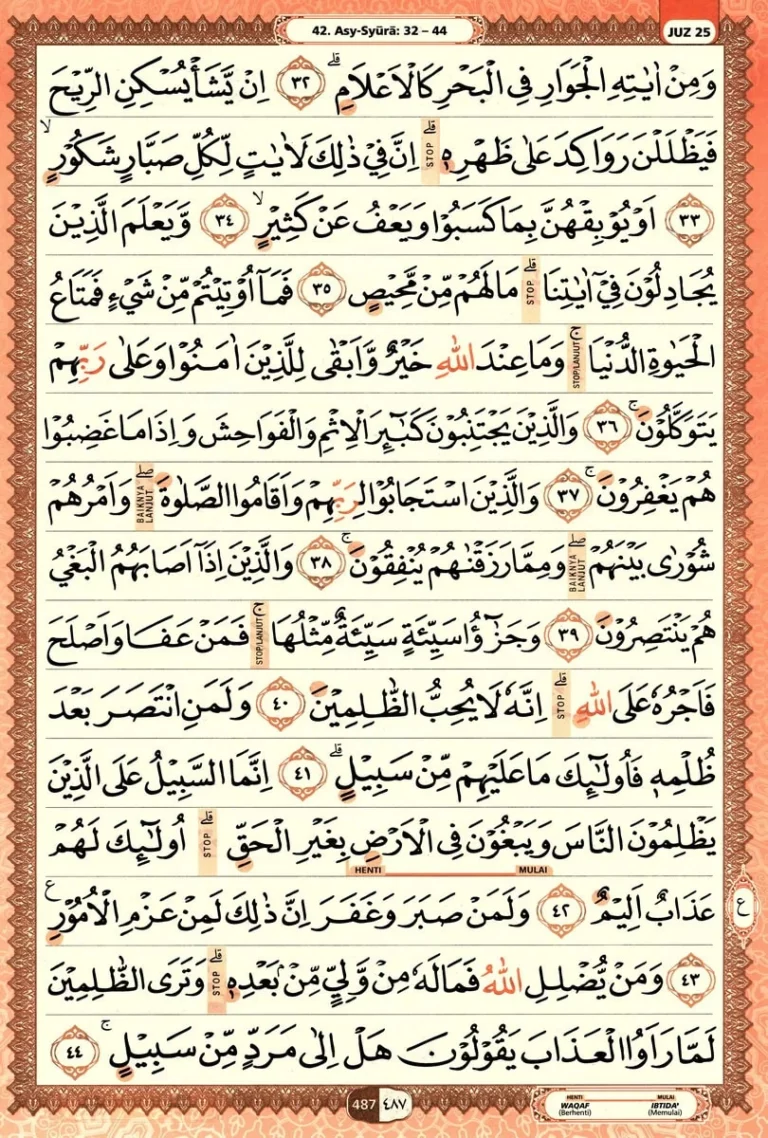 42. Asy-Syūrā: 32 – 44
JUZ 25
وَمِنْ اٰيٰتِهِ الْجَوَارِ فِى الْبَحْرِ كَالْاَعْلَامِ ۗ ٣٢ اِنْ يَّشَأْ يُسْكِنِ الرِّيْحَ
فَيَظْلَلْنَ رَوَاكِدَ عَلٰى ظَهْرِهٖ ۗ STOP اِنَّ فِيْ ذٰلِكَ لَاٰيٰتٍ لِّكُلِّ صَبَّارٍ شَكُوْرٍ ۙ
٣٣ اَوْ يُوْبِقْهُنَّ بِمَا كَسَبُوْا وَيَعْفُ عَنْ كَثِيْرٍ ۙ ٣٤ وَّيَعْلَمَ الَّذِيْنَ
يُجَادِلُوْنَ فِيْٓ اٰيٰتِنَا ۗ STOP مَا لَهُمْ مِّنْ مَّحِيْصٍ ٣٥ فَمَآ اُوْتِيْتُمْ مِّنْ شَيْءٍ فَمَتَاعُ
الْحَيٰوةِ الدُّنْيَا ۚ STOP/LANJUT وَمَا عِنْدَ اللّٰهِ خَيْرٌ وَّاَبْقٰى لِلَّذِيْنَ اٰمَنُوْا وَعَلٰى رَبِّهِمْ
يَتَوَكَّلُوْنَ ۚ ٣٦ وَالَّذِيْنَ يَجْتَنِبُوْنَ كَبٰۤىِٕرَ الْاِثْمِ وَالْفَوَاحِشَ وَاِذَا مَا غَضِبُوْا
هُمْ يَغْفِرُوْنَ ۚ ٣٧ وَالَّذِيْنَ اسْتَجَابُوْا لِرَبِّهِمْ وَاَقَامُوا الصَّلٰوةَ ۖ BAIKNYA LANJUT وَاَمْرُهُمْ
شُوْرٰى بَيْنَهُمْ ۖ BAIKNYA LANJUT وَمِمَّا رَزَقْنٰهُمْ يُنْفِقُوْنَ ۚ ٣٨ وَالَّذِيْنَ اِذَآ اَصَابَهُمُ الْبَغْيُ
هُمْ يَنْتَصِرُوْنَ ٣٩ وَجَزٰۤؤُا سَيِّئَةٍ سَيِّئَةٌ مِّثْلُهَا ۚ STOP/LANJUT فَمَنْ عَفَا وَاَصْلَحَ
فَاَجْرُهٗ عَلَى اللّٰهِ ۗ STOP اِنَّهٗ لَا يُحِبُّ الظّٰلِمِيْنَ ٤٠ وَلَمَنِ انْتَصَرَ بَعْدَ
ظُلْمِهٖ فَاُولٰۤىِٕكَ مَا عَلَيْهِمْ مِّنْ سَبِيْلٍ ۗ ٤١ اِنَّمَا السَّبِيْلُ عَلَى الَّذِيْنَ
يَظْلِمُوْنَ النَّاسَ وَيَبْغُوْنَ فِى الْاَرْضِ بِغَيْرِ الْحَقِّ ۗ STOP اُولٰۤىِٕكَ لَهُمْ
HENTI MULAI
عَذَابٌ اَلِيْمٌ ٤٢ وَلَمَنْ صَبَرَ وَغَفَرَ اِنَّ ذٰلِكَ لَمِنْ عَزْمِ الْاُمُوْرِ ࣖ
ع
٤٣ وَمَنْ يُّضْلِلِ اللّٰهُ فَمَا لَهٗ مِنْ وَّلِيٍّ مِّنْۢ بَعْدِهٖ ۗ STOP وَتَرَى الظّٰلِمِيْنَ
لَمَّا رَاَوُا الْعَذَابَ يَقُوْلُوْنَ هَلْ اِلٰى مَرَدٍّ مِّنْ سَبِيْلٍ ۚ ٤٤
487 ٤٨٧
HENTI MULAI
WAQAF IBTIDA'
(Berhenti) (Memulai)